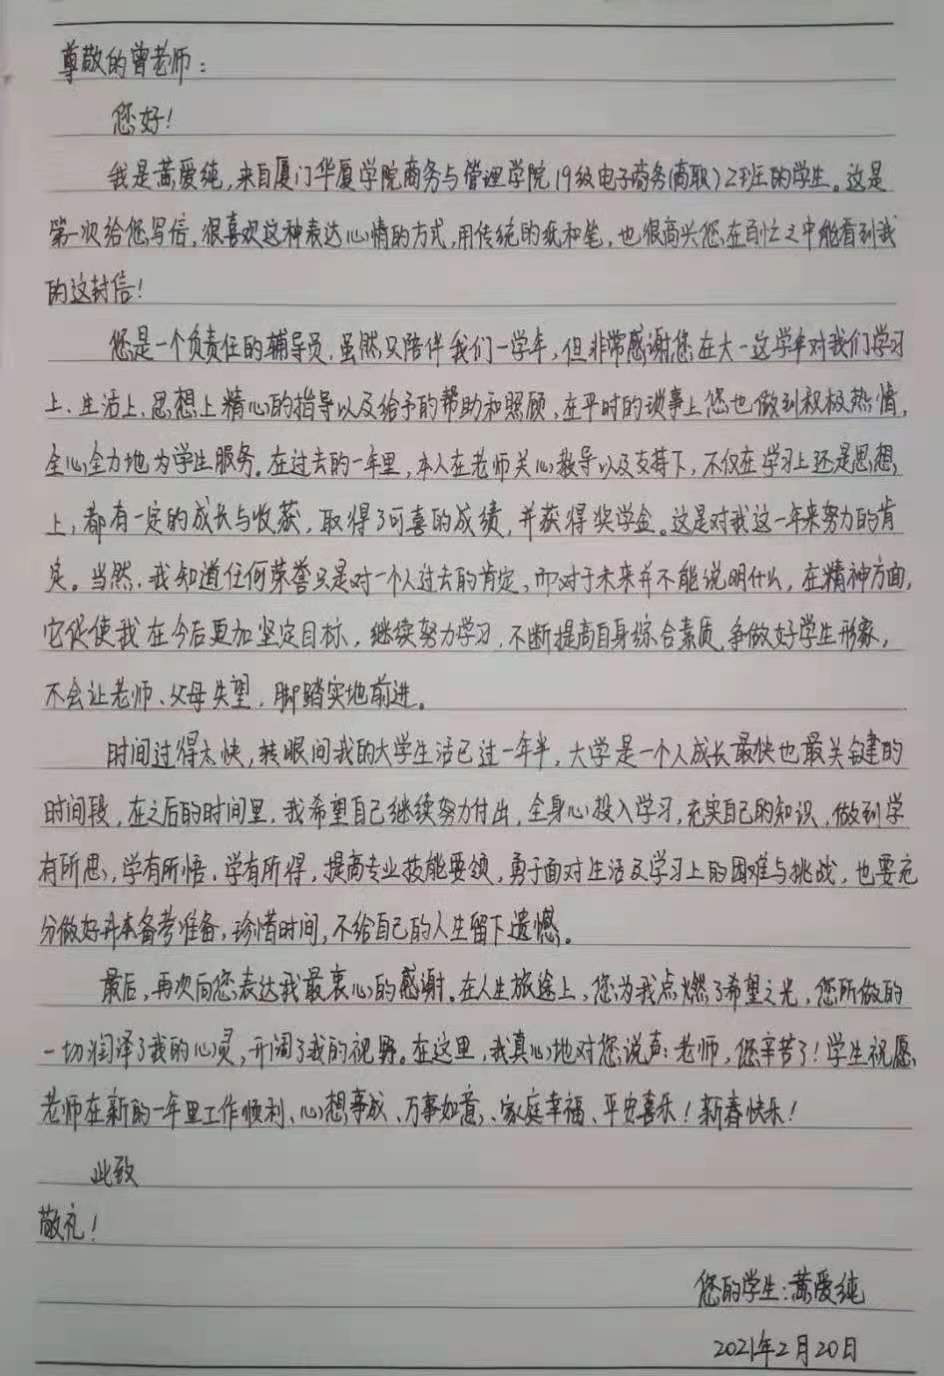 尊敬的曾老师：
您好！
我是黄爱纯，来自厦门华厦学院商务与管理学院19级电子商务(高职)2班的学生。这是
第一次给您写信，很喜欢这种表达心情的方式，用传统的纸和笔，也很高兴您在百忙之中能看到我
的这封信！
您是一个负责任的辅导员，虽然只陪伴我们一学年，但非常感谢您在大一这学年对我们学习
上、生活上、思想上精心的指导以及给予的帮助和照顾，在平时的琐事上您也做到积极热情，
全心全力地为学生服务。在过去的一年里，本人在老师关心教导以及支持下，不仅在学习上还是思想
上，都有一定的成长与收获，取得了可喜的成绩，并获得奖学金。这是对我这一年来努力的肯
定。当然，我知道任何荣誉只是对一个人过去的肯定，而对于未来并不能说明什么，在精神方面，
它促使我在今后更加坚定目标，继续努力学习，不断提高自身综合素质，争做好学生形象，
不会让老师、父母失望，脚踏实地前进。
时间过得太快，转眼间我的大学生活已过一年半，大学是一个人成长最快也最关键的
时间段，在之后的时间里，我希望自己继续努力付出，全身心投入学习，充实自己的知识，做到学
有所思，学有所悟，学有所得，提高专业技能要领，勇于面对生活及学习上的困难与挑战，也要充
分做好升本备考准备，珍惜时间，不给自己的人生留下遗憾。
最后，再次向您表达我最衷心的感谢。在人生旅途上，您为我点燃了希望之光，您所做的
一切润泽了我的心灵，开阔了我的视野。在这里，我真心地对您说声：老师，您辛苦了！学生祝愿
老师在新的一年里工作顺利、心想事成、万事如意、家庭幸福、平安喜乐！新春快乐！
此致
敬礼！
您的学生：黄爱纯
2021年2月20日